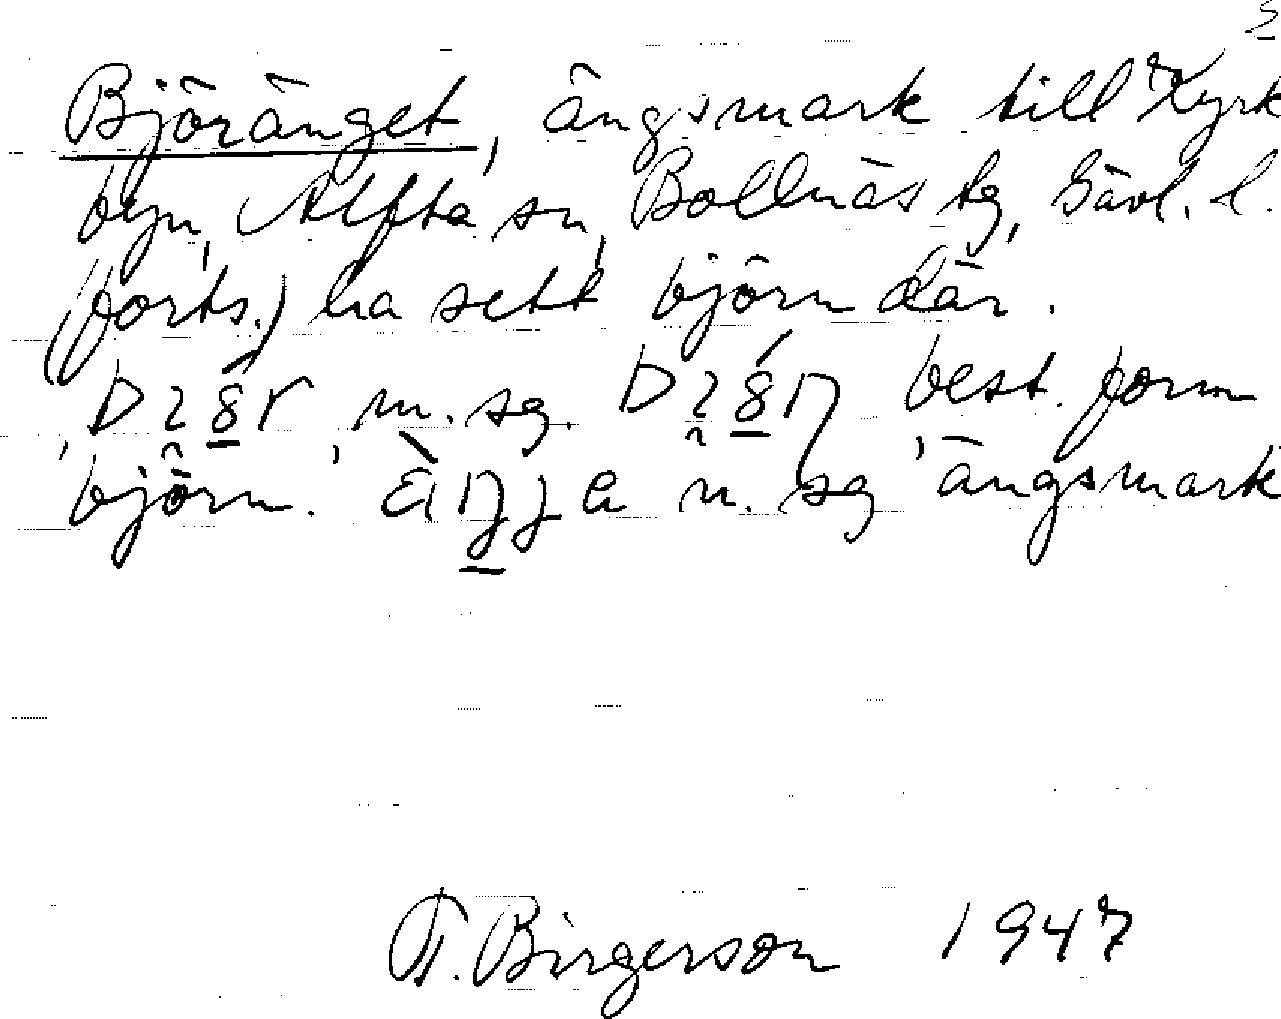 2
Björänget, ängsmark till Kyrk
byn, Alfta sn, Bollnäs tg, Gävl. l.
(forts.) ha sett björn där.
m. sg. best. form
'björn'. n. sg 'ängsmark
T. Birgerson 1947